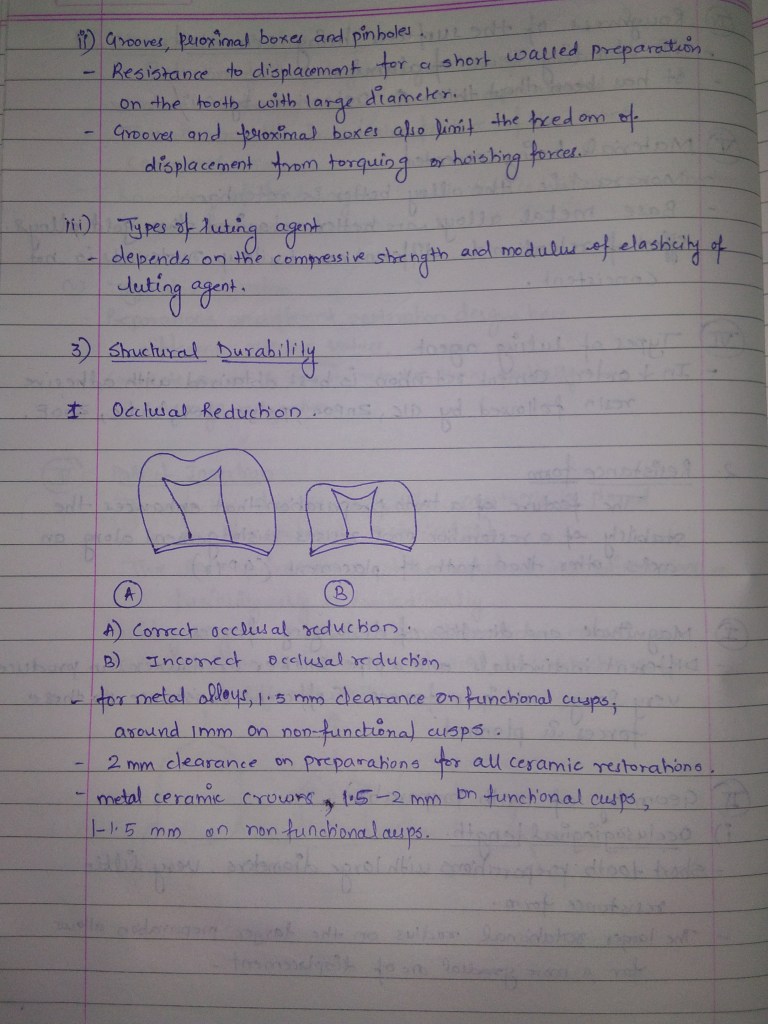 ii) Grooves, proximal boxes and pinholes.
- Resistance to displacement for a short walled preparation
on the tooth with large diameter.
- Grooves and proximal boxes also limit the freedom of
displacement from torquing or hoisting forces.
iii) Types of luting agent
- depends on the compressive strength and modulus of elasticity of
luting agent.
3) Structural Durability
I Occlusal Reduction.
A B
A) Correct occlusal reduction.
B) Incorrect occlusal reduction
- for metal alloys, 1.5 mm clearance on functional cusps,
around 1mm on non-functional cusps.
- 2 mm clearance on preparations for all ceramic restorations.
- metal ceramic crowns, 1.5-2 mm on functional cusps,
1-1.5 mm on non functional cusps.